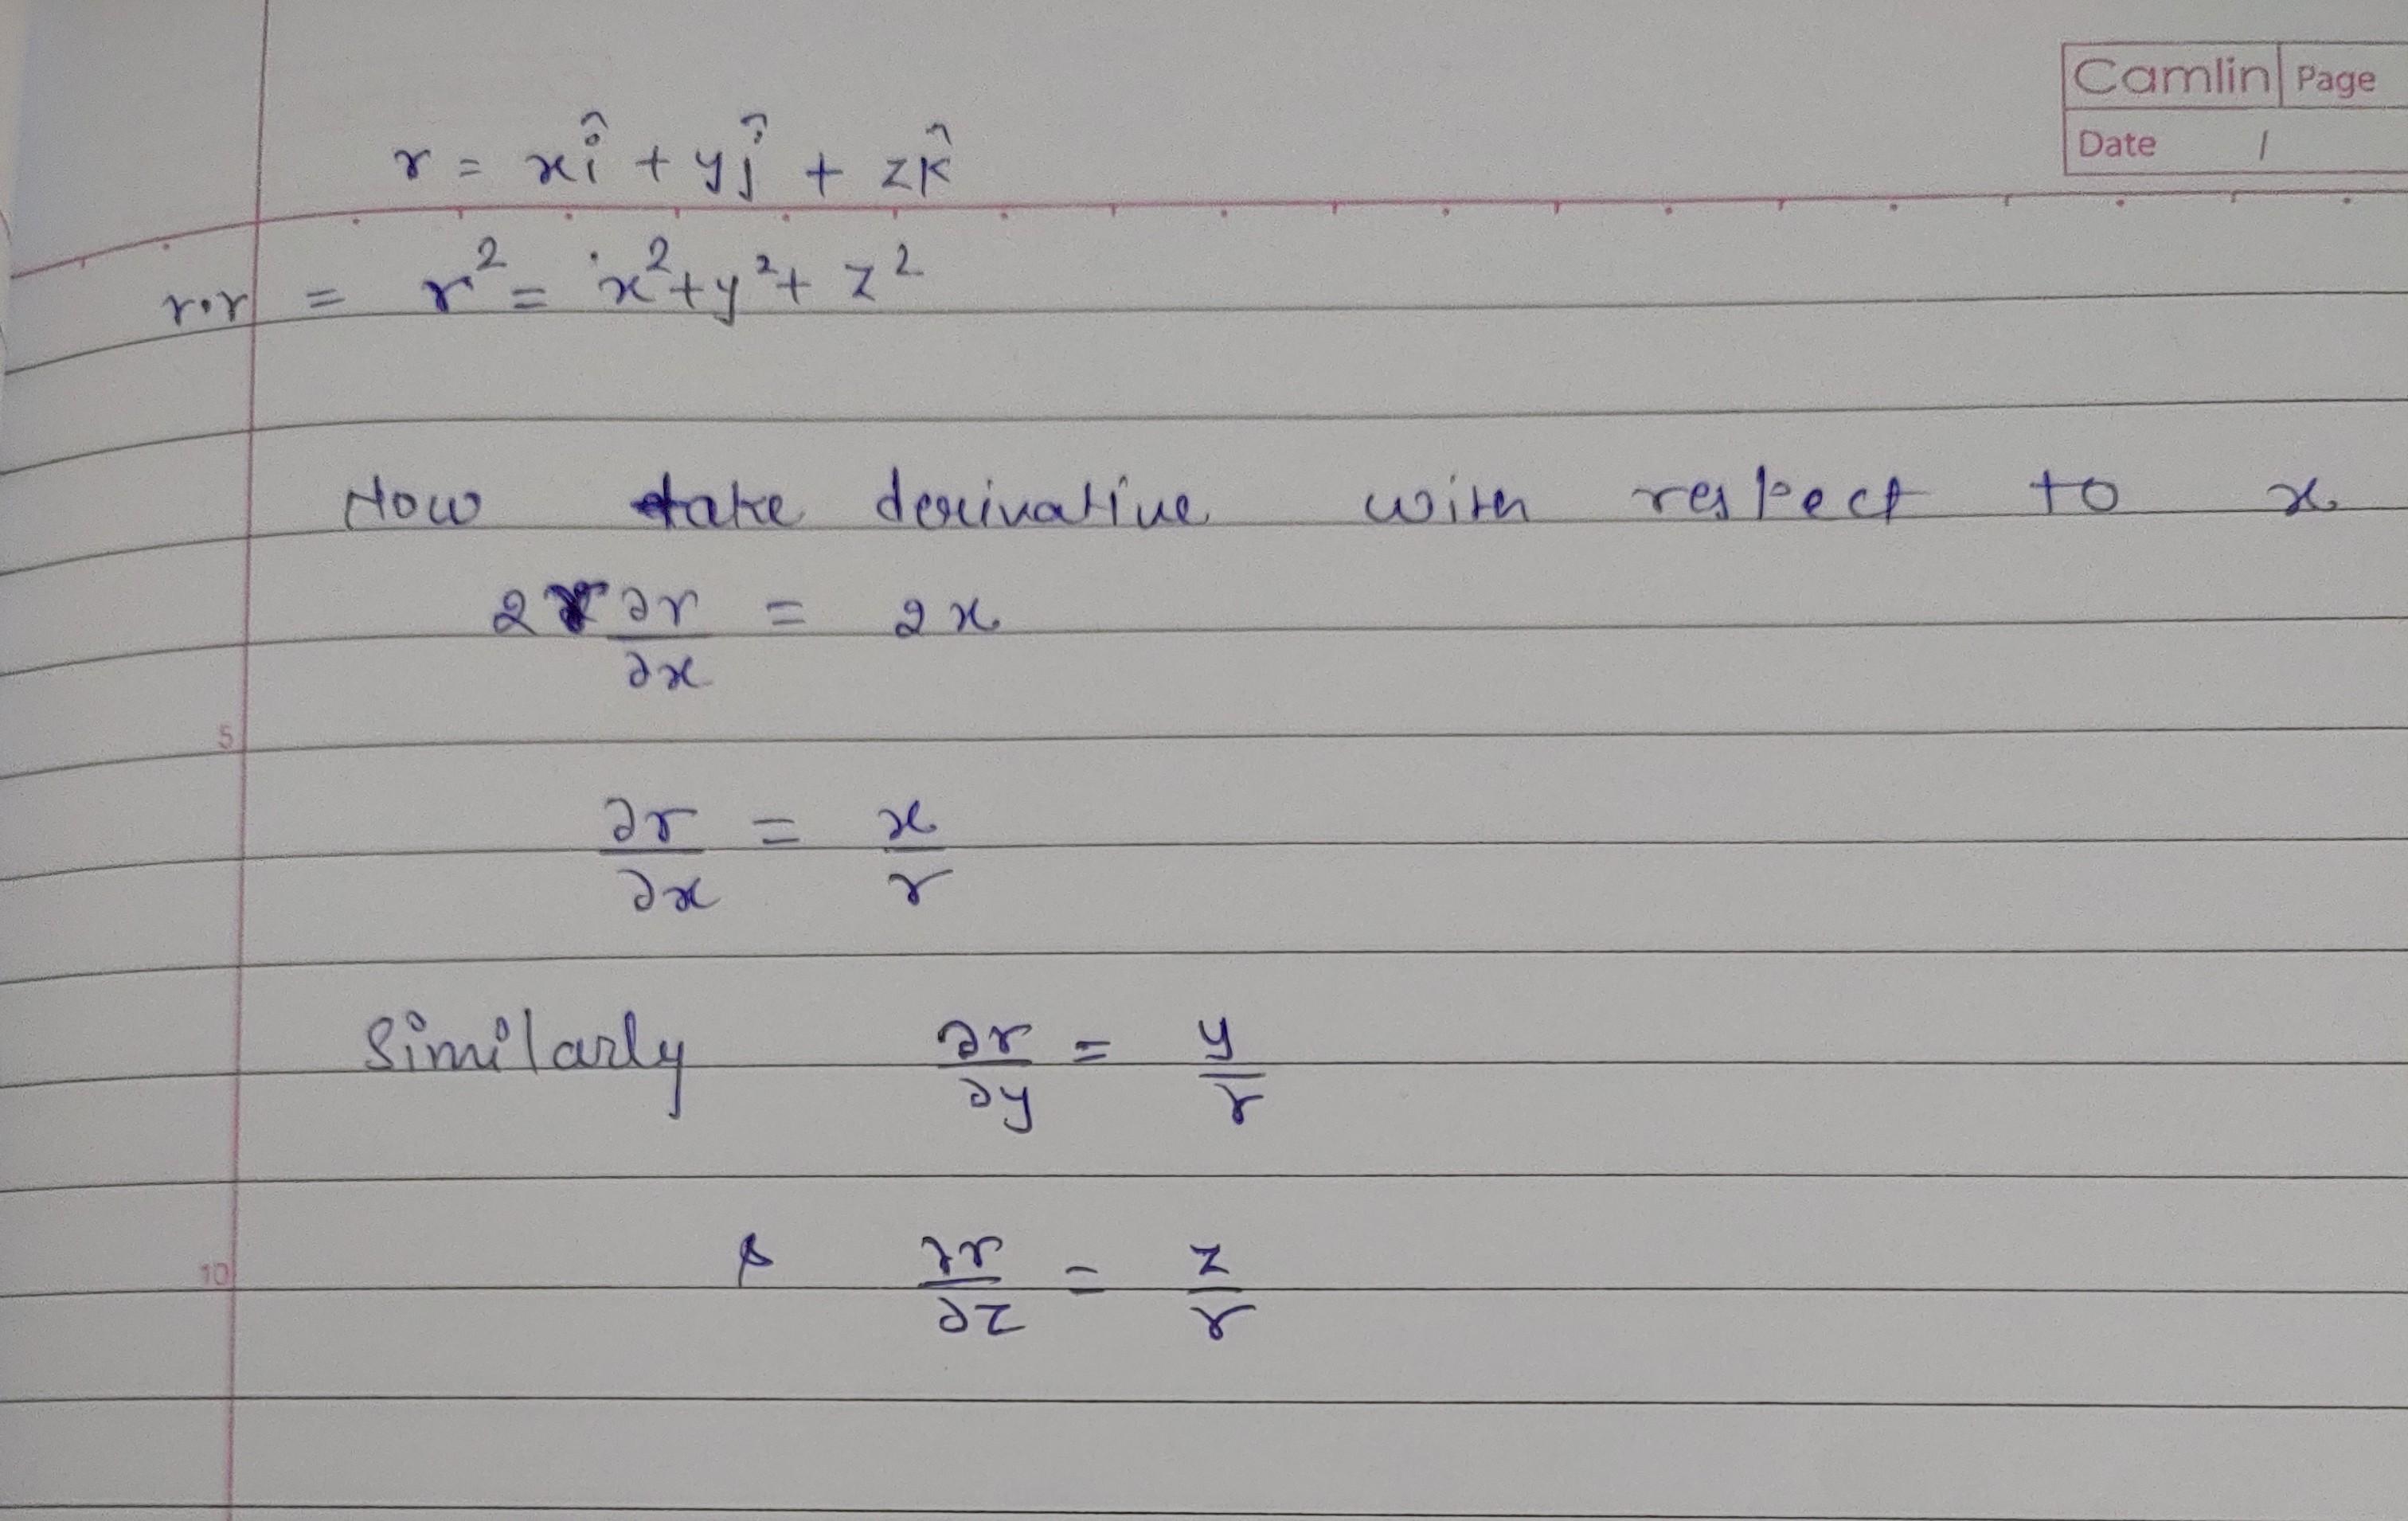 Camlin Page
Date /
r = xî + yĵ + zk̂
r.r = r² = x² + y² + z²
Now take derivative with respect to x
2r ∂r/∂x = 2x
5
∂r/∂x = x/r
Similarly ∂r/∂y = y/r
10
& ∂r/∂z = z/r